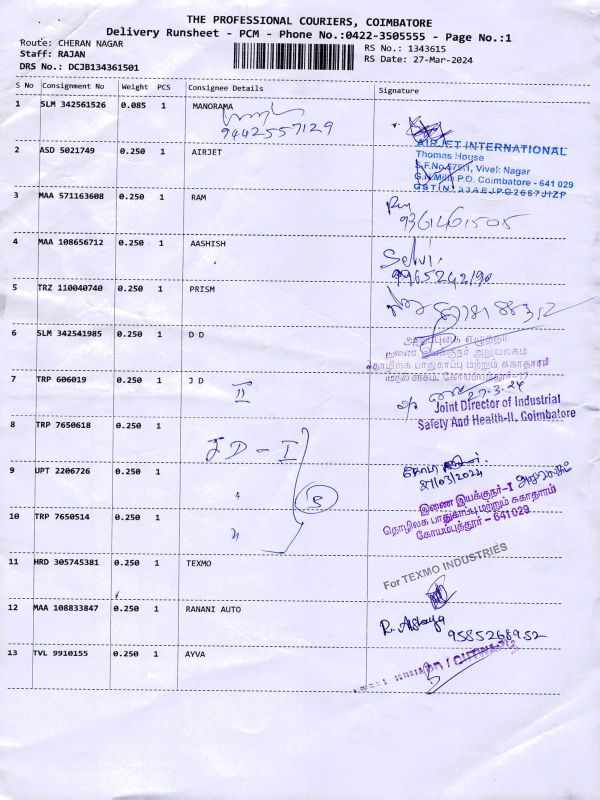 THE PROFESSIONAL COURIERS, COIMBATORE
Delivery Runsheet - PCM - Phone No.:0422-3505555 - Page No.:1
Route: CHERAN NAGAR
RS No.: 1343615
Staff: RAJAN
RS Date: 27-Mar-2024
DRS No.: DCJB134361501
S No Consignment No Weight PCS Consignee Details Signature
1 SLM 342561526 0.085 1 MANORAMA
9442557129
2 ASD 5021749 0.250 1 AIRJET
AIRJET INTERNATIONAL
Thomas House
S.F.No.578/1, Vivek Nagar
G.N.Mills P.O. Coimbatore - 641 029
3 MAA 571163608 0.250 1 RAM
9361461505
4 MAA 108656712 0.250 1 AASHISH
Selvi
9965242190
5 TRZ 110040740 0.250 1 PRISM
6 SLM 342541985 0.250 1 D D
துணை இயக்குநர் அலுவலகம்
தொழிலக பாதுகாப்பு மற்றும் சுகாதாரம்
7 TRP 606019 0.250 1 J D
II
27-3-24
Joint Director of Industrial
Safety And Health-II, Coimbatore
8 TRP 7650618 0.250 1
JD - I
9 UPT 2206726 0.250 1
"
இணை இயக்குநர்-I அலுவலகம்
தொழிலக பாதுகாப்பு மற்றும் சுகாதாரம்
கோயம்புத்தூர் - 641029
10 TRP 7650514 0.250 1
"
11 HRD 305745381 0.250 1 TEXMO
For TEXMO INDUSTRIES
12 MAA 108833847 0.250 1 RANANI AUTO
9585268952
13 TVL 9910155 0.250 1 AYVA